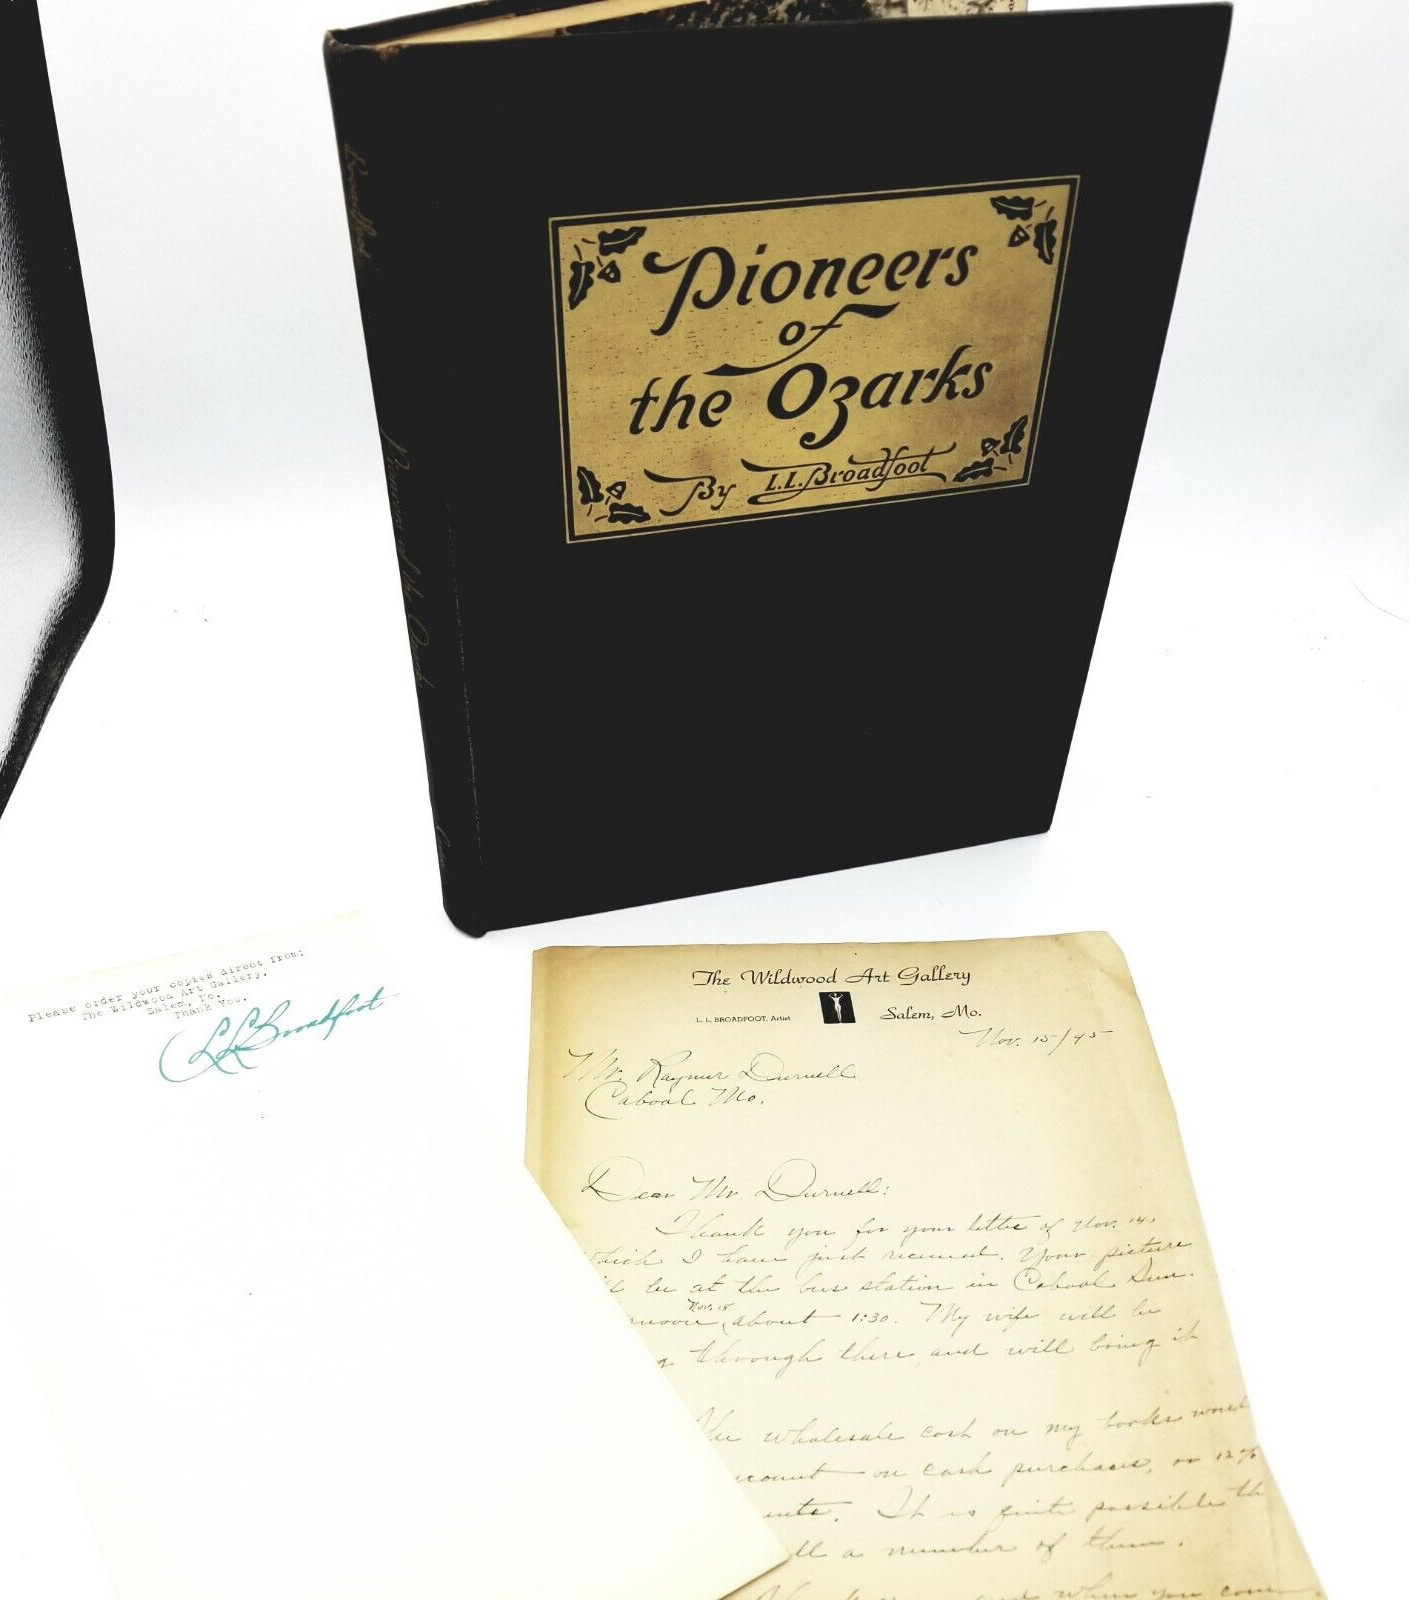 Broadfoot
Pioneers of the Ozarks
Pioneers
of
the Ozarks
By L.L. Broadfoot
Please order your copies direct from;
The Wildwood Art Gallery,
Salem, Mo.
Thank You.
L L Broadfoot
The Wildwood Art Gallery
L. L. BROADFOOT, Artist
Salem, Mo.
Nov. 15/45
Mr. Raymur Durnell
Cabool Mo.
Dear Mr. Durnell:
Thank you for your letter of Nov. 14,
which I have just received. Your picture
be at the bus station in Cabool Sun.
Nov. 18
about 1:30. My wife will be
through there, and will bring it
The wholesale cost on my books would
on cash purchases, or 12%
It is quite possible th
a number of them.
and when you come